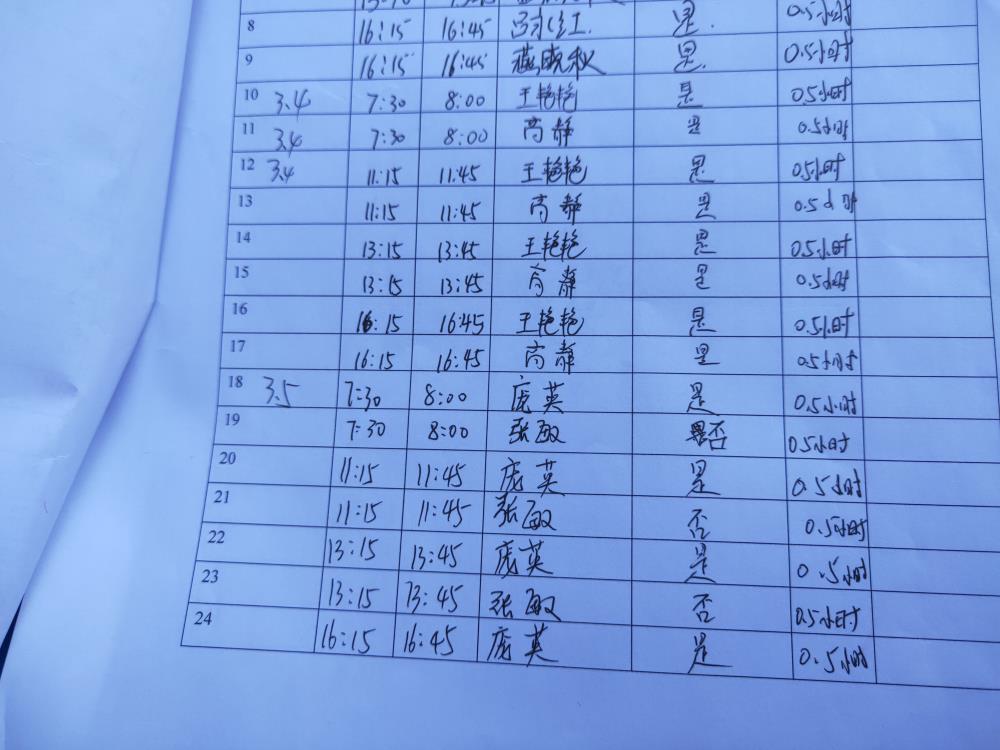 8 16:15 16:45 是. 0.5小时
9 16:15 16:45 燕晓秋 是. 0.5小时
10 3.4 7:30 8:00 王艳艳 是 0.5小时
11 3.4 7:30 8:00 高静 是 0.5小时
12 3.4 11:15 11:45 王艳艳 是 0.5小时
13 11:15 11:45 高静 是 0.5小时
14 13:15 13:45 王艳艳 是 0.5小时
15 13:15 13:45 高静 是 0.5小时
16 16:15 16:45 王艳艳 是 0.5小时
17 16:15 16:45 高静 是 0.5小时
18 3.5 7:30 8:00 庞英 是 0.5小时
19 7:30 8:00 张敏 否 0.5小时
20 11:15 11:45 庞英 是 0.5小时
21 11:15 11:45 张敏 否 0.5小时
22 13:15 13:45 庞英 是 0.5小时
23 13:15 13:45 张敏 否 0.5小时
24 16:15 16:45 庞英 是 0.5小时